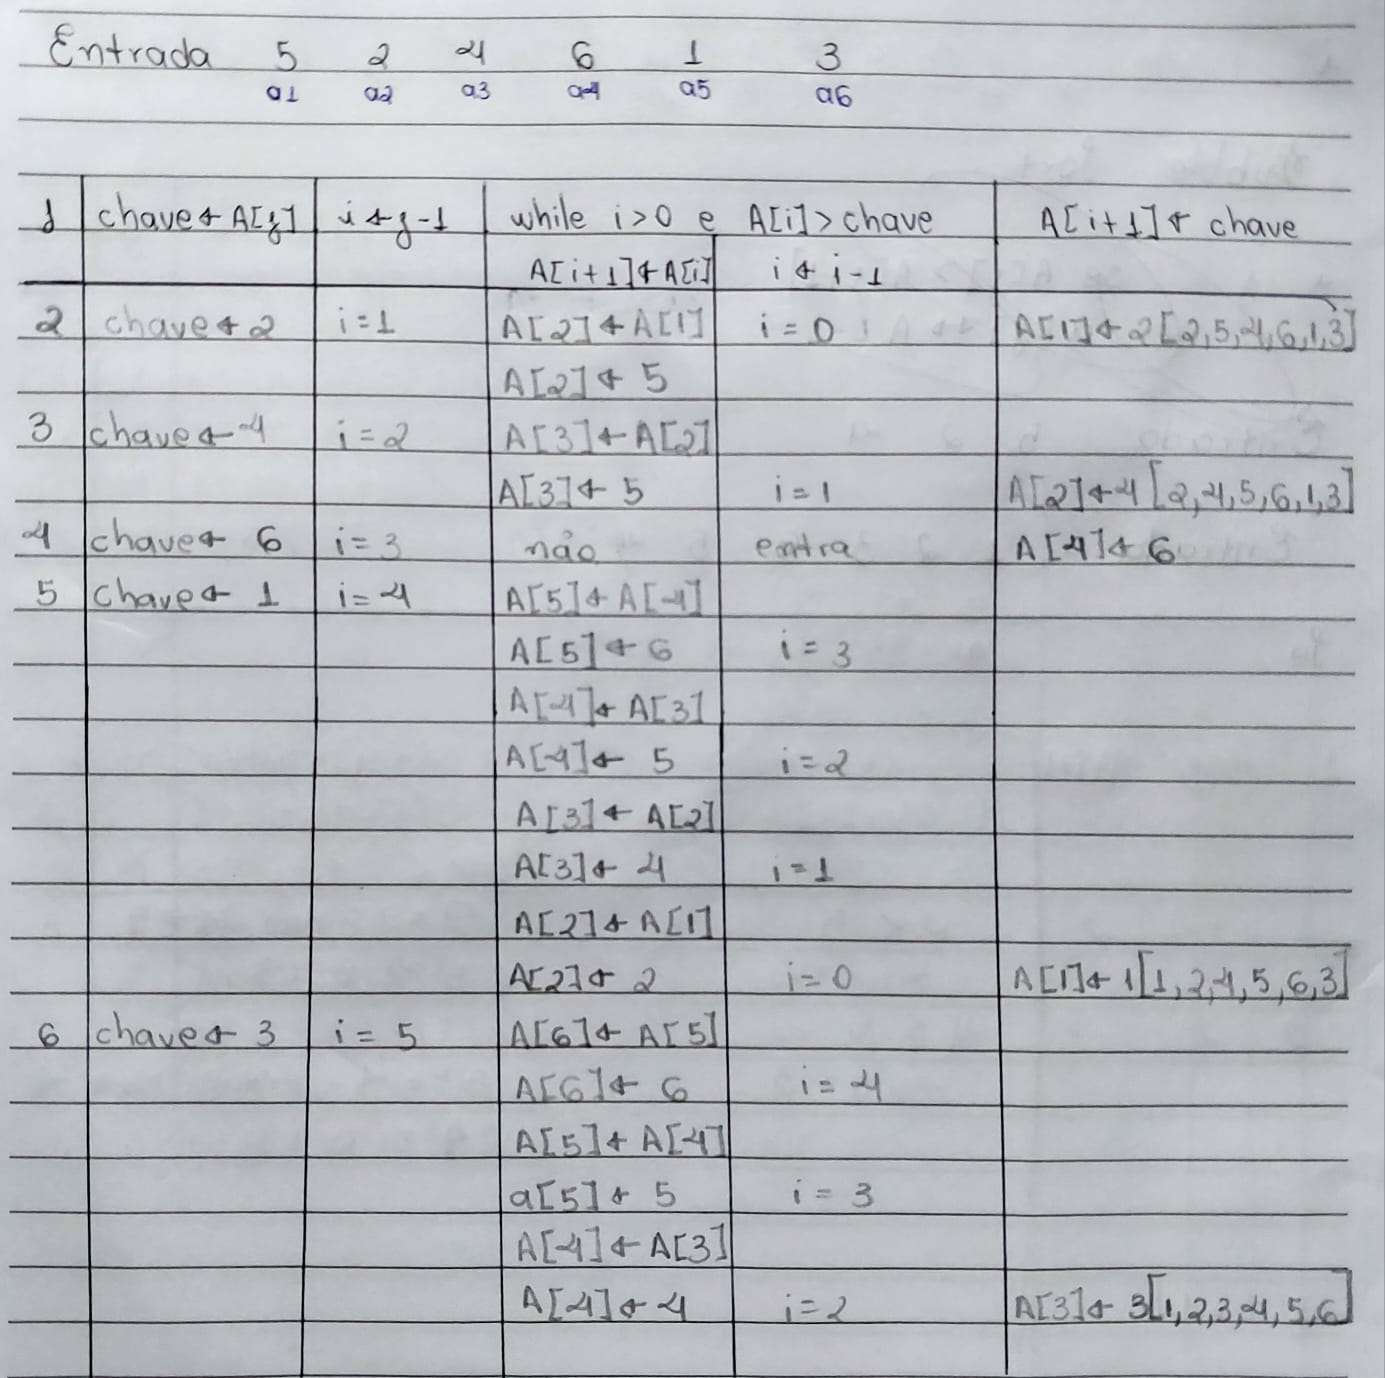 Entrada 5 2 4 6 1 3
a1 a2 a3 a4 a5 a6
j chave ← A[j] i ← j-1 while i>0 e A[i]>chave A[i+1] ← chave
A[i+1] ← A[i] i ← i-1
2 chave ← 2 i=1 A[2] ← A[1] i = 0 A[1] ← 2 [2,5,4,6,1,3]
A[2] ← 5
3 chave ← 4 i = 2 A[3] ← A[2]
A[3] ← 5 i = 1 A[2] ← 4 [2,4,5,6,1,3]
4 chave ← 6 i = 3 não entra A[4] ← 6
5 chave ← 1 i = 4 A[5] ← A[4]
A[5] ← 6 i = 3
A[4] ← A[3]
A[4] ← 5 i = 2
A[3] ← A[2]
A[3] ← 4 i = 1
A[2] ← A[1]
A[2] ← 2 i = 0 A[1] ← 1 [1,2,4,5,6,3]
6 chave ← 3 i = 5 A[6] ← A[5]
A[6] ← 6 i = 4
A[5] ← A[4]
a[5] ← 5 i = 3
A[4] ← A[3]
A[4] ← 4 i = 2 A[3] ← 3 [1,2,3,4,5,6]